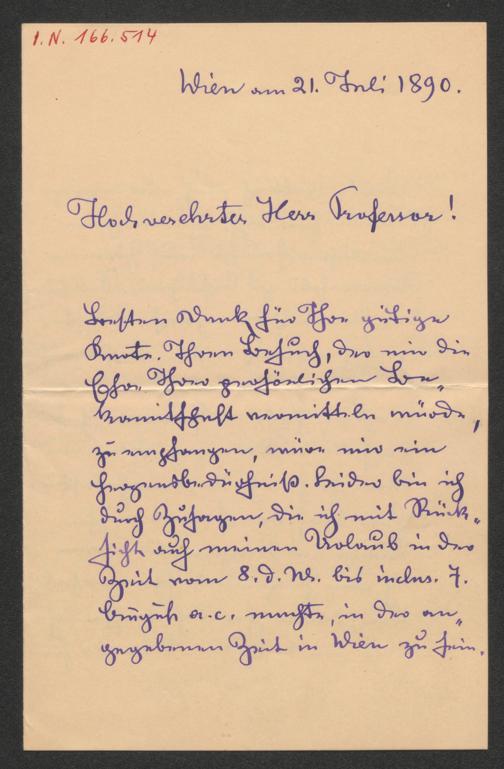 I.N. 166.514
Wien am 21. Juli 1890.
Hochverehrter Herr Professor!
Besten Dank für Ihre gütige
Karte. Ihren Besuch, der mir die
Ehre Ihrer persönlichen Be„
kanntschaft vermitteln würde,
zu empfangen, wäre mir ein
Herzensbedürfniß. Leider bin ich
durch Zusagen, die ich mit Rück„
sicht auf meinen Urlaub in der
Zeit vom 8. d. M. bis inclus. 7.
August a.c. machte, in der an„
gegebenen Zeit in Wien zu sein,